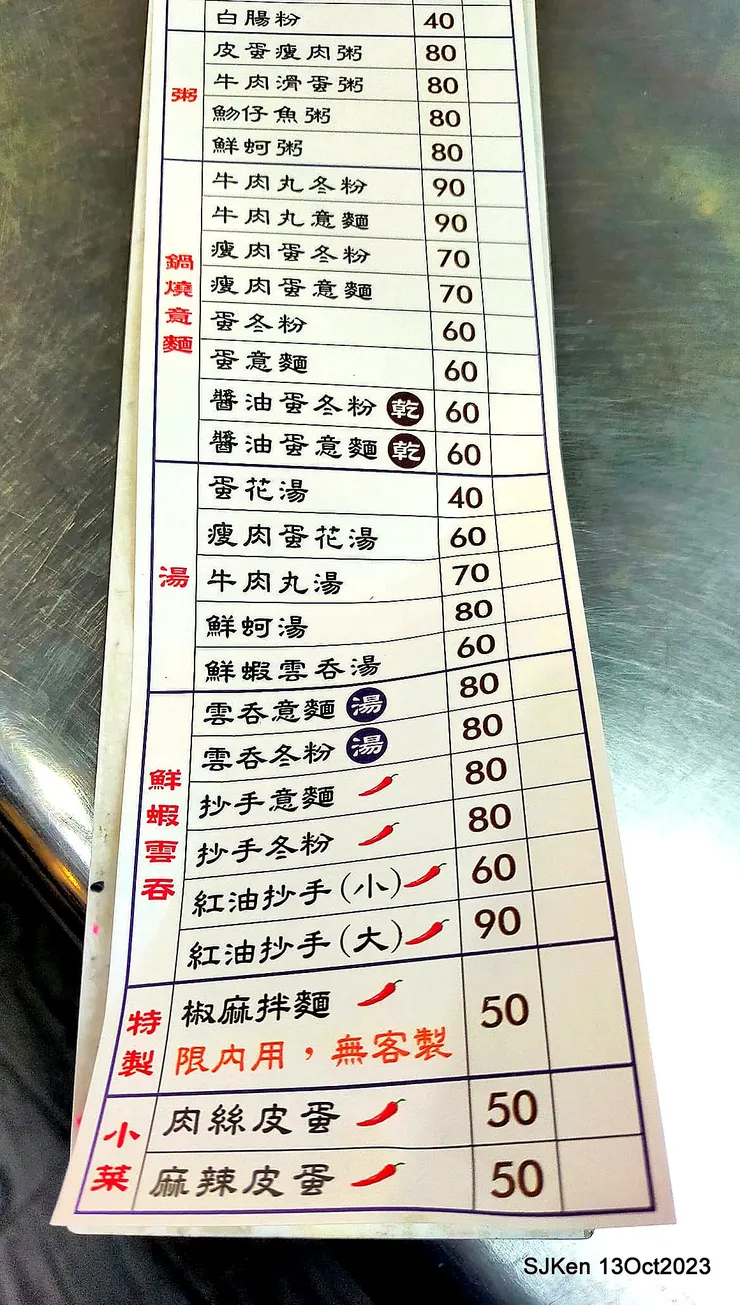 白腸粉 40
粥
皮蛋瘦肉粥 80
牛肉滑蛋粥 80
魩仔魚粥 80
鮮蚵粥 80
鍋燒意麵
牛肉丸冬粉 90
牛肉丸意麵 90
瘦肉蛋冬粉 70
瘦肉蛋意麵 70
蛋冬粉 60
蛋意麵 60
醬油蛋冬粉 乾 60
醬油蛋意麵 乾 60
湯
蛋花湯 40
瘦肉蛋花湯 60
牛肉丸湯 70
鮮蚵湯 80
鮮蝦雲吞湯 60
鮮蝦雲吞
雲吞意麵 湯 80
雲吞冬粉 湯 80
抄手意麵 80
抄手冬粉 80
紅油抄手(小) 60
紅油抄手(大) 90
特製
椒麻拌麵 50
限內用，無客製
小菜
肉絲皮蛋 50
麻辣皮蛋 50
SJKen 13Oct2023